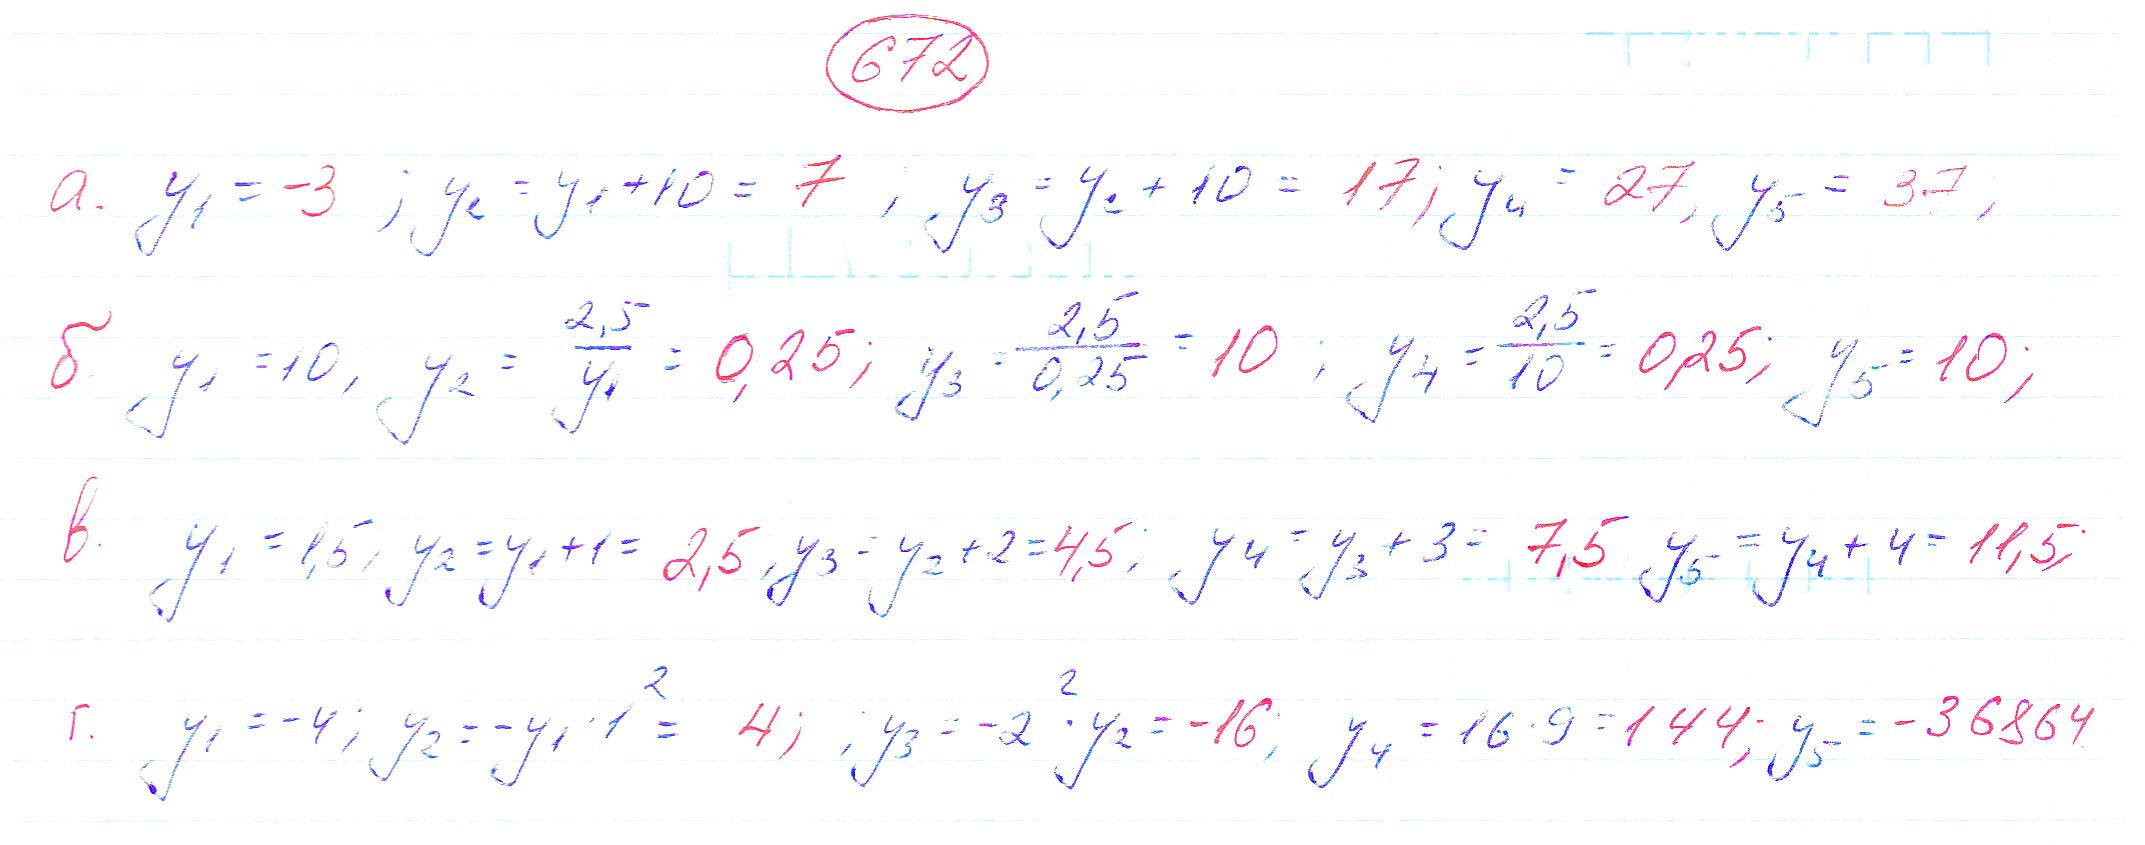 672
а. y₁ = -3 ; y₂ = y₁ + 10 = 7 ; y₃ = y₂ + 10 = 17; y₄ = 27, y₅ = 37;
б. y₁ = 10, y₂ = 2,5/y₁ = 0,25; y₃ = 2,5/0,25 = 10 ; y₄ = 2,5/10 = 0,25; y₅ = 10;
в. y₁ = 1,5, y₂ = y₁ + 1 = 2,5, y₃ = y₂ + 2 = 4,5; y₄ = y₃ + 3 = 7,5 y₅ = y₄ + 4 = 11,5;
г. y₁ = -4; y₂ = -y₁ · 1² = 4; ; y₃ = -2² · y₂ = -16; y₄ = 16 · 9 = 144; y₅ = -36864